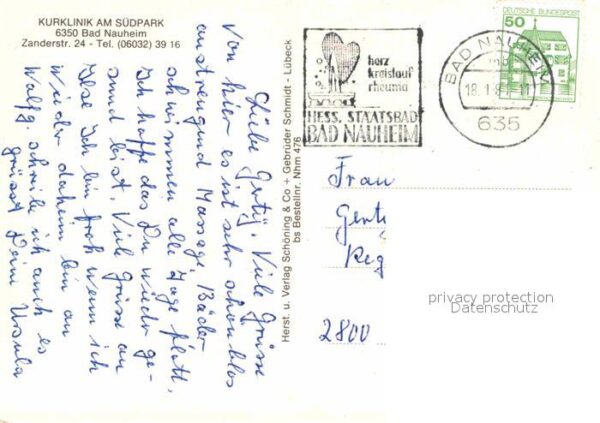 KURKLINIK AM SÜDPARK
6350 Bad Nauheim
Zanderstr. 24 - Tel. (06032) 39 16
Liebe Gerty, Viele Grüsse
von hier es ist sehr schön blos
anstrengend Massage, Bäder
schwimmen alle Tage platt,
Ich hoffe das Du wieder ge-
sund bist. Viele Grüsse an
Ilse Ich bin froh wenn ich
wieder daheim bin an
Walfg schreibe ich auch es
grüsst Deine Ursula
Herst. u. Verlag Schöning & Co + Gebrüder Schmidt - Lübeck
bs Bestellnr. Nhm 476
herz
kreislauf
rheuma
HESS. STAATSBAD
BAD NAUHEIM
BAD NAUHEIM
18.1.8
635
DEUTSCHE BUNDESPOST
50
Frau
Gert
Reg
2800
privacy protection
Datenschutz